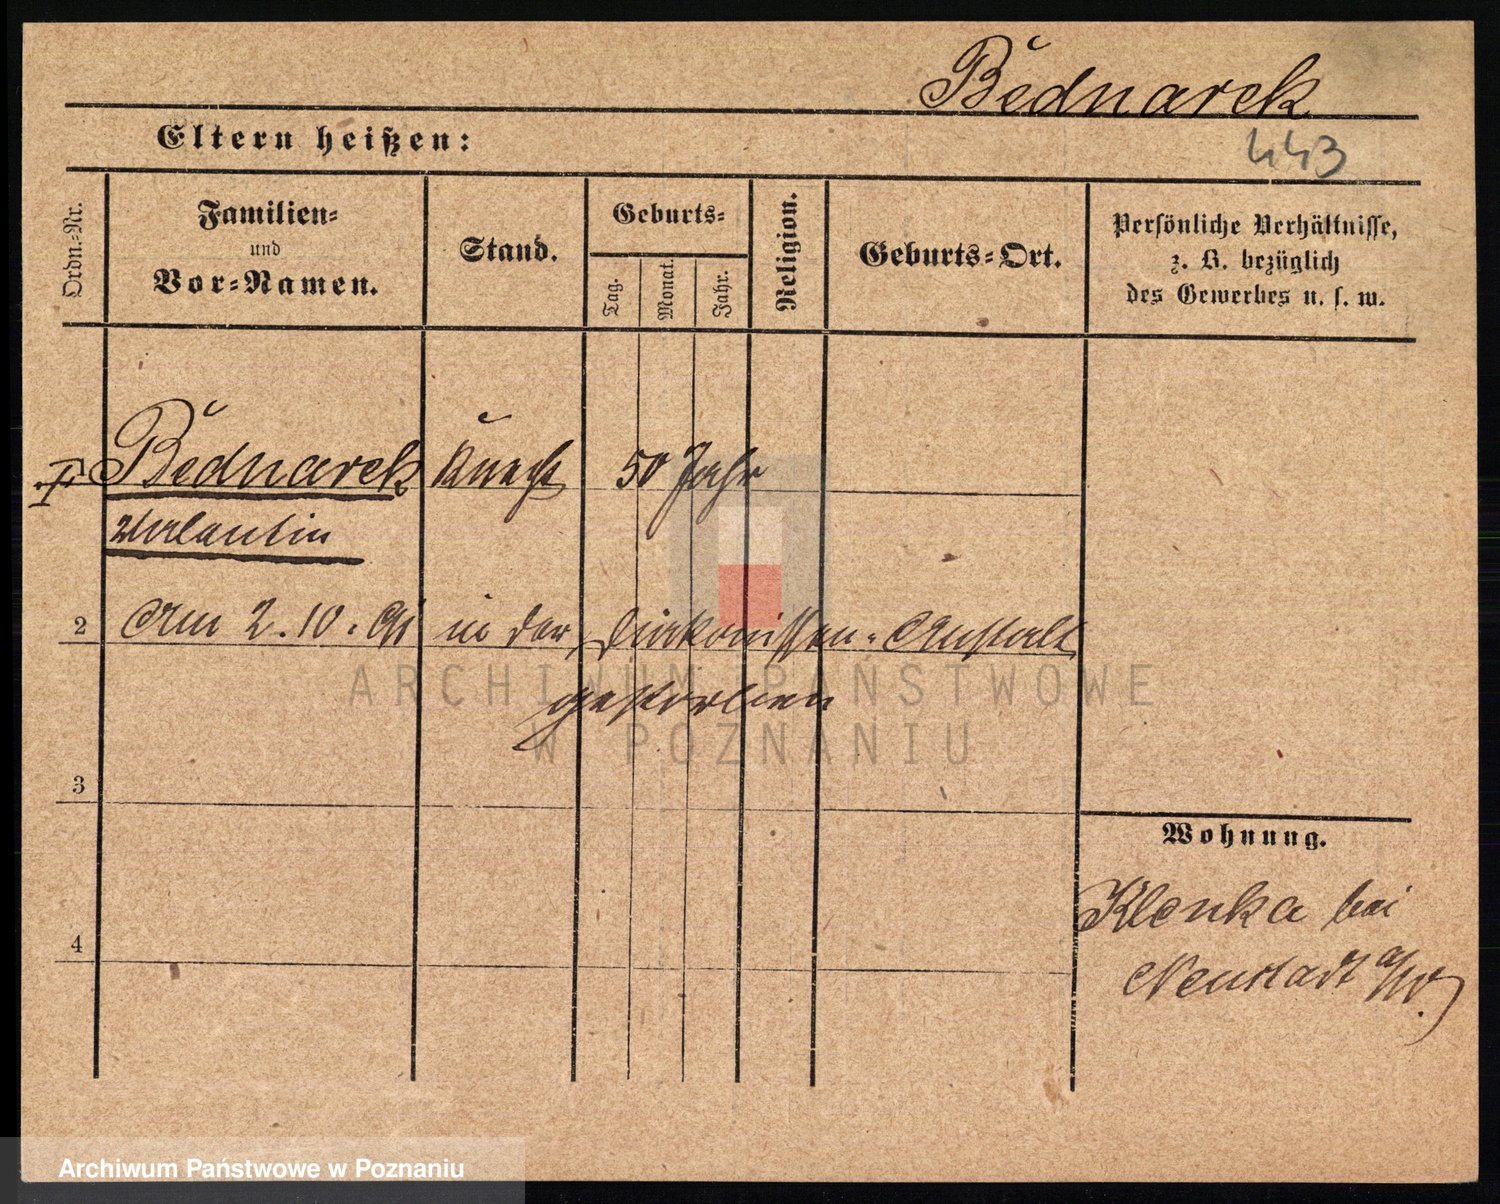 Bednarek
443
Eltern heißen:
Ordn.-Nr.
Familien-
und
Vor-Namen.
Stand.
Geburts-
Tag.
Monat.
Jahr.
Religion.
Geburts-Ort.
Persönliche Verhältnisse,
z. B. bezüglich
des Gewerbes u. s. w.
Bednarek Knecht 50 Jahr
Valentin
2 Am 2.10.91 in der Diakonissen-Anstalt
gestorben
3
4
Wohnung.
Klenka bei
Neustadt a/W.
ARCHIWUM PAŃSTWOWE
W POZNANIU
Archiwum Państwowe w Poznaniu